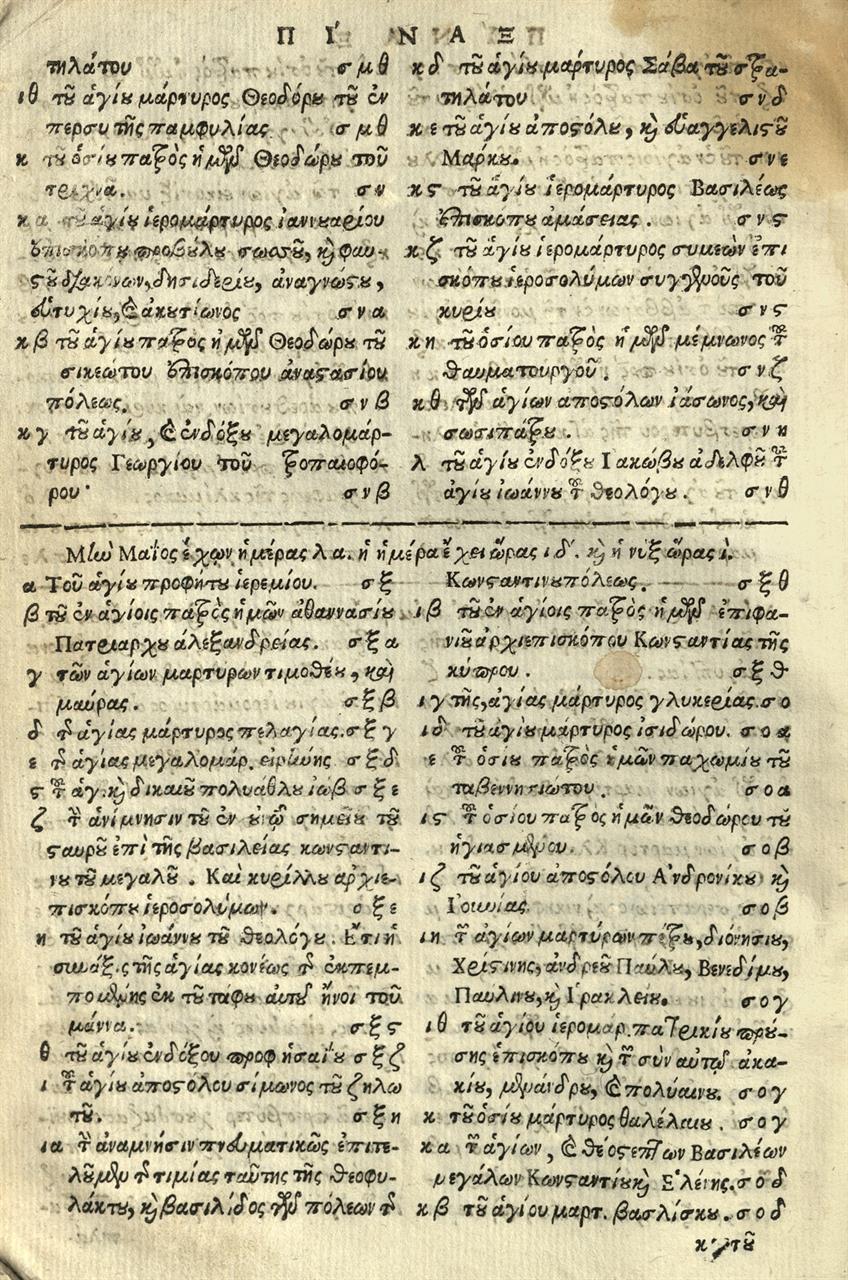 ΠΙΝΑΞ
τηλάτου σμθ
ιθ τοῦ ἁγίου μάρτυρος Θεοδόρου τοῦ ἐν
περσυ τῆς παμφυλίας σμθ
κ τοῦ ὁσίου πατρὸς ἡμῶν Θεοδώρου τοῦ
τριχινα. σν
κα τοῦ ἁγίου ἱερομάρτυρος ἰαννουαρίου
ἐπισκόπου προβούλου σωσοῦ, καὶ φαυ-
ςοῦ διακόνων, δησιδερίου, ἀναγνώςου,
εὐτυχίου, καὶ ἀκουτίωνος σνα
κβ τοῦ ἁγίου πατρὸς ἡμῶν Θεοδώρου τοῦ
σικεώτου ἐπισκόπου ἀναςασίου
πόλεως. σνβ
κγ τοῦ ἁγίου, καὶ ἐνδόξου μεγαλομάρ-
τυρος Γεωργίου τοῦ τροπαιοφό-
ρου· σνβ
κδ τοῦ ἁγίου μάρτυρος Σάβα τοῦ σρα-
τηλάτου σνδ
κε τοῦ ἁγίου ἀποςόλου, καὶ εὐαγγελιςοῦ
Μάρκου. σνε
κς τοῦ ἁγίου ἱερομάρτυρος Βασιλέως
ἐπισκόπου ἀμάσειας. σνς
κζ τοῦ ἁγίου ἱερομάρτυρος συμεὼν ἐπι
σκόπου ἱεροσολύμων συγγενοῦς τοῦ
κυρίου σνς
κη τοῦ ὁσίου πατρὸς ἡμῶν μέμνωνος τοῦ
θαυματουργοῦ. σνζ
κθ τῶν ἁγίων αποςόλων ἰάσωνος, καὶ
σωσιπάτρου. σνη
λ τοῦ ἁγίου ἐνδόξου Ιακώβου ἀδελφοῦ τοῦ
ἁγίου ἰωάννου τοῦ θεολόγου. σνθ
Μὴν Μαΐος ἔχων ἡμέρας λα. ἡ ἡμέρα ἔχει ὥρας ιδ. καὶ ἡ νυξ ὥρας ι.
α Τοῦ ἁγίου προφήτου ἱερεμίου. σξ
β τοῦ ἐν ἁγίοις πατρὸς ἡμῶν ἀθαννασίου
Πατριαρχου ἀλεξανδρείας. σξα
γ τῶν ἁγίων μαρτυρων τιμοθέου, καὶ
μαύρας. σξβ
δ τῆς ἁγίας μάρτυρος πελαγίας. σξγ
ε τῆς ἁγίας μεγαλομάρ. εἰρήνης σξδ
ς τοῦ ἁγ. καὶ δικαιοῦ πολυάθλου ἰώβ σξε
ζ τὴν ἀνίμνησιν τοῦ ἐν οὐνῷ σημείου τοῦ
ςαυροῦ ἐπὶ τῆς βασιλείας κωνςαντι-
νου τοῦ μεγαλοῦ. Καὶ κυρίλλου αρχιε-
πισκόπου ἱεροσολύμων. σξε
η τοῦ ἁγίου ἰωάννου τοῦ θεολόγου. Ἔτι ἡ
σιωάξις τῆς ἁγίας κονέως τῆς ἐκπεμ-
πομένης ἐκ τοῦ τάφου αὐτοῦ ἤνοι τοῦ
μάννα. σξς
θ τοῦ ἁγίου ἐνδόξου προφ ἡσαΐου σξζ
ι τοῦ ἁγίου ἀποςόλου σίμωνος τοῦ ζηλω
τοῦ. σξη
ια τὴν ἀναμνήσιν πνευματικῶς ἐπιτε-
λοῦμεν τῆς τιμίας ταῦτης τῆς θεοφυ-
λάκτου, καὶ βασιλίδος τῶν πόλεων τῆς
Κωνςαντινουπόλεως. σξθ
ιβ τοῦ ἐν ἁγίοις πατρὸς ἡμῶν ἐπιφα-
νιοῦ ἀρχιεπισκόπου Κωνςαντίας τῆς
κύπρου. σξθ
ιγ τῆς, ἁγίας μάρτυρος γλυκερίας. σο
ιδ τοῦ ἁγίου μάρτυρος ἰσιδώρου. σοα
ε τοῦ ὁσίου πατρὸς ἡμῶν παχωμίου τοῦ
ταβεννησιώτου. σοα
ις τοῦ ὁσίου πατρὸς ἡμῶν θεοδώρου τοῦ
ἡγιασμένου. σοβ
ιζ τοῦ ἁγίου ἀποςόλου Ανδρονίκου καὶ
Ιουνίας. σοβ
ιη τῶν ἁγίων μαρτύρων πέτρου, διόνησιου,
Χριςινης, ἀνδρεοῦ Παύλου, Βενεδίμου,
Παυλινου, καὶ Ιρακλειου. σογ
ιθ τοῦ ἁγίου ἱερομαρ. πατρικίου πρού-
σης ἐπισκόπου καὶ τῶν σὺν αὐτῷ ἀκα-
κίου, μενάνδρου, καὶ πολυαίνου. σογ
κ τοῦ ὁσίου μάρτυρος θαλέλαιου. σογ
κα τῶν ἁγίων, καὶ θεόςεπτων Βασιλέων
μεγάλων Κωνςαντίου καὶ Ελένης. σοδ
κβ τοῦ ἁγίου μαρτ. βασλίσκου. σοδ